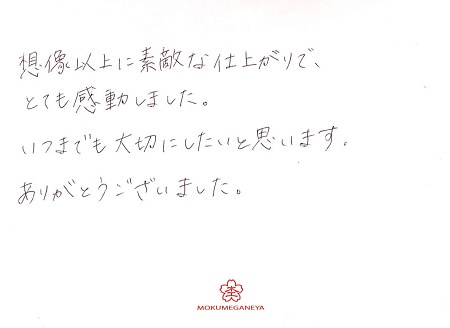 想像以上に素敵な仕上がりで、
とても感動しました。
いつまでも大切にしたいと思います。
ありがとうございました。
MOKUMEGANEYA